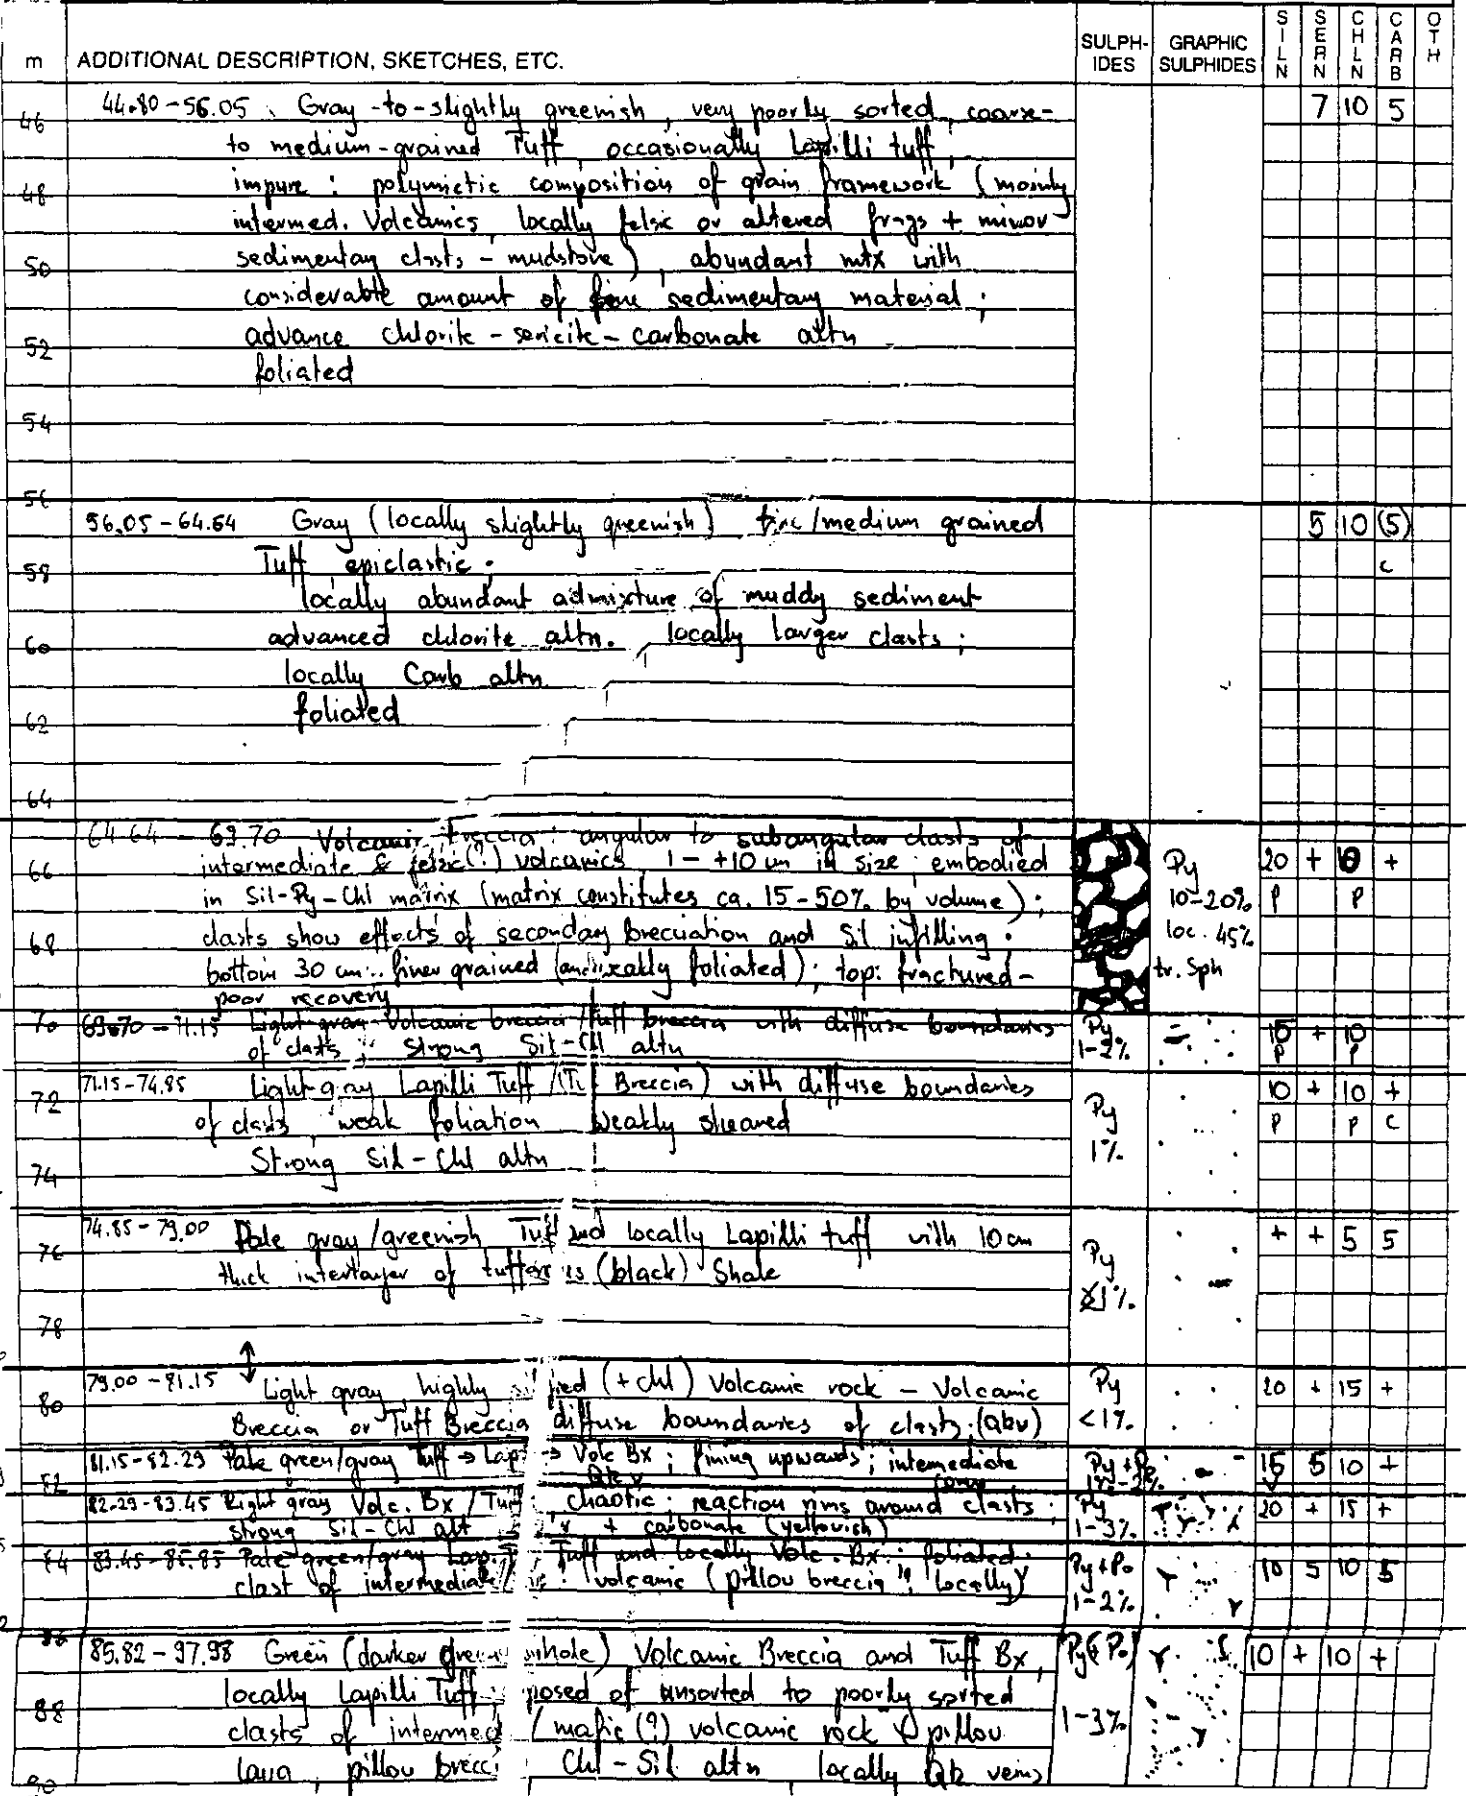 m ADDITIONAL DESCRIPTION, SKETCHES, ETC. SULPH-IDES GRAPHIC SULPHIDES SILN SERN CHLN CARB OTH
44.80-56.05 Gray-to-slightly greenish, very poorly sorted, coarse- 7 10 5
46
to medium-grained Tuff, occasionally Lapilli tuff,
impure: polymictic composition of grain framework (mainly
48
intermed. Volcanics, locally felsic or altered frags + minor
sedimentary clasts - mudstone), abundant mtx with
50
considerable amount of fine sedimentary material;
advance chlorite-sericite-carbonate altn
52
foliated
54
56
56.05-64.64 Gray (locally slightly greenish) fine/medium grained 5 10 (5)
Tuff epiclastic; c
58
locally abundant admixture of muddy sediment
advanced chlorite altn. locally larger clasts;
60
locally Carb altn
foliated
62
64
64.64 - 69.70 Volcanic breccia: angular to subangular clasts of
intermediate & felsic(?) volcanics 1-+10 cm in size; embodied Py 20 + 10 +
66
in Sil-Py-Chl matrix (matrix constitutes ca. 15-50% by volume); 10-20% P P
clasts show effects of secondary brecciation and Sil infilling; loc. 45%
68
bottom 30 cm: finer grained (and locally foliated); top: fractured- tr. Sph
poor recovery
70 69.70-71.15 Light gray Volcanic breccia/Tuff breccia with diffuse boundaries Py 15 + 10
of clasts; strong Sil-Chl altn 1-2% P P
71.15-74.85 Light gray Lapilli Tuff / Breccia) with diffuse boundaries Py 10 + 10 +
72
of clasts, weak foliation weakly sheared 1% P P C
Strong Sil-Chl altn
74
74.85-79.00 Pale gray/greenish Tuff and locally Lapilli tuff with 10 cm Py + + 5 5
76
thick interlayer of (black) Shale <1%
78
79.00-81.15 Light gray, highly (+chl) Volcanic rock - Volcanic Py 20 + 15 +
80
Breccia or Tuff Breccia diffuse boundaries of clasts; (Qbv) <1%
81.15-82.29 Pale green/gray Tuff → → Volc Bx; fining upwards; intermediate Py + Po 15 5 10 +
82 1%-2%
82.29-83.45 Light gray Volc. Bx / Tuff chaotic; reaction rims around clasts; Py 20 + 15 +
strong Sil-Chl alt + carbonate (yellowish) 1-3%
84 83.45-85.85 Pale green/gray Tuff and locally Volc. Bx; foliated; Py+Po 10 5 10 5
clast of volcanic (pillow breccia", locally) 1-2%
86
85.82-97.98 Green (darker Volcanic Breccia and Tuff Bx, Py(&Po) 10 + 10 +
locally Lapilli Tuff; posed of unsorted to poorly sorted
88
clasts of intermed (mafic (?) volcanic rock & pillow 1-3%
lava, pillow brecci Chl-Sil altn, locally Qtz veins
90